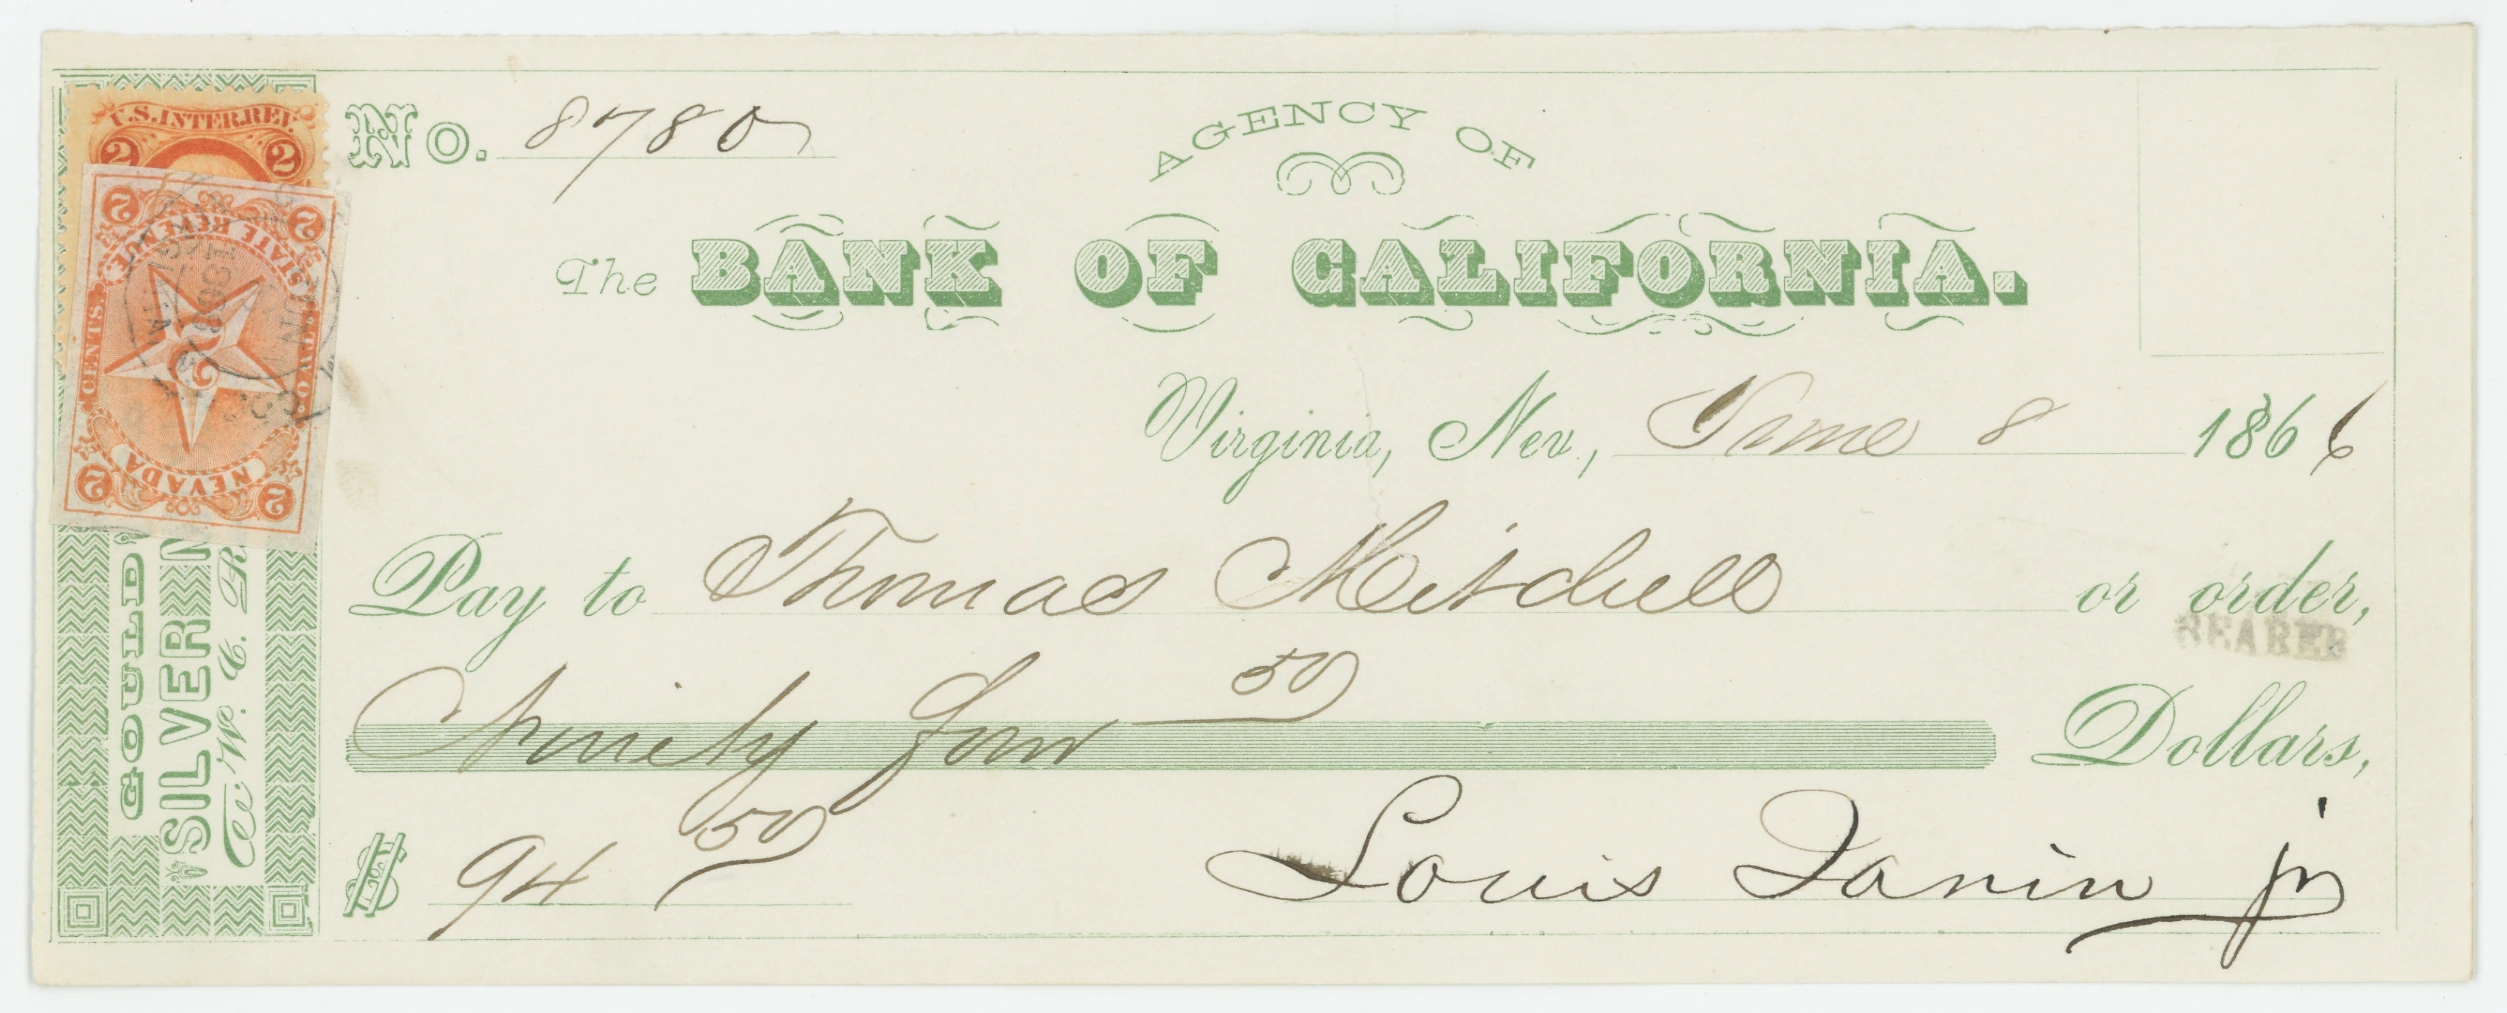 No. 8780
AGENCY OF
The BANK OF CALIFORNIA.
Virginia, Nev., June 8 1866
Pay to Thomas Mitchell or order,
BEARER
Ninety four 50 Dollars,
$ 94 50
Louis Janin jr
U.S. INTER. REV.
2 2
2 2
STATE REVENUE
CENTS. TWO
2
NEVADA
2 2
GOULD
SILVER
W. C. R